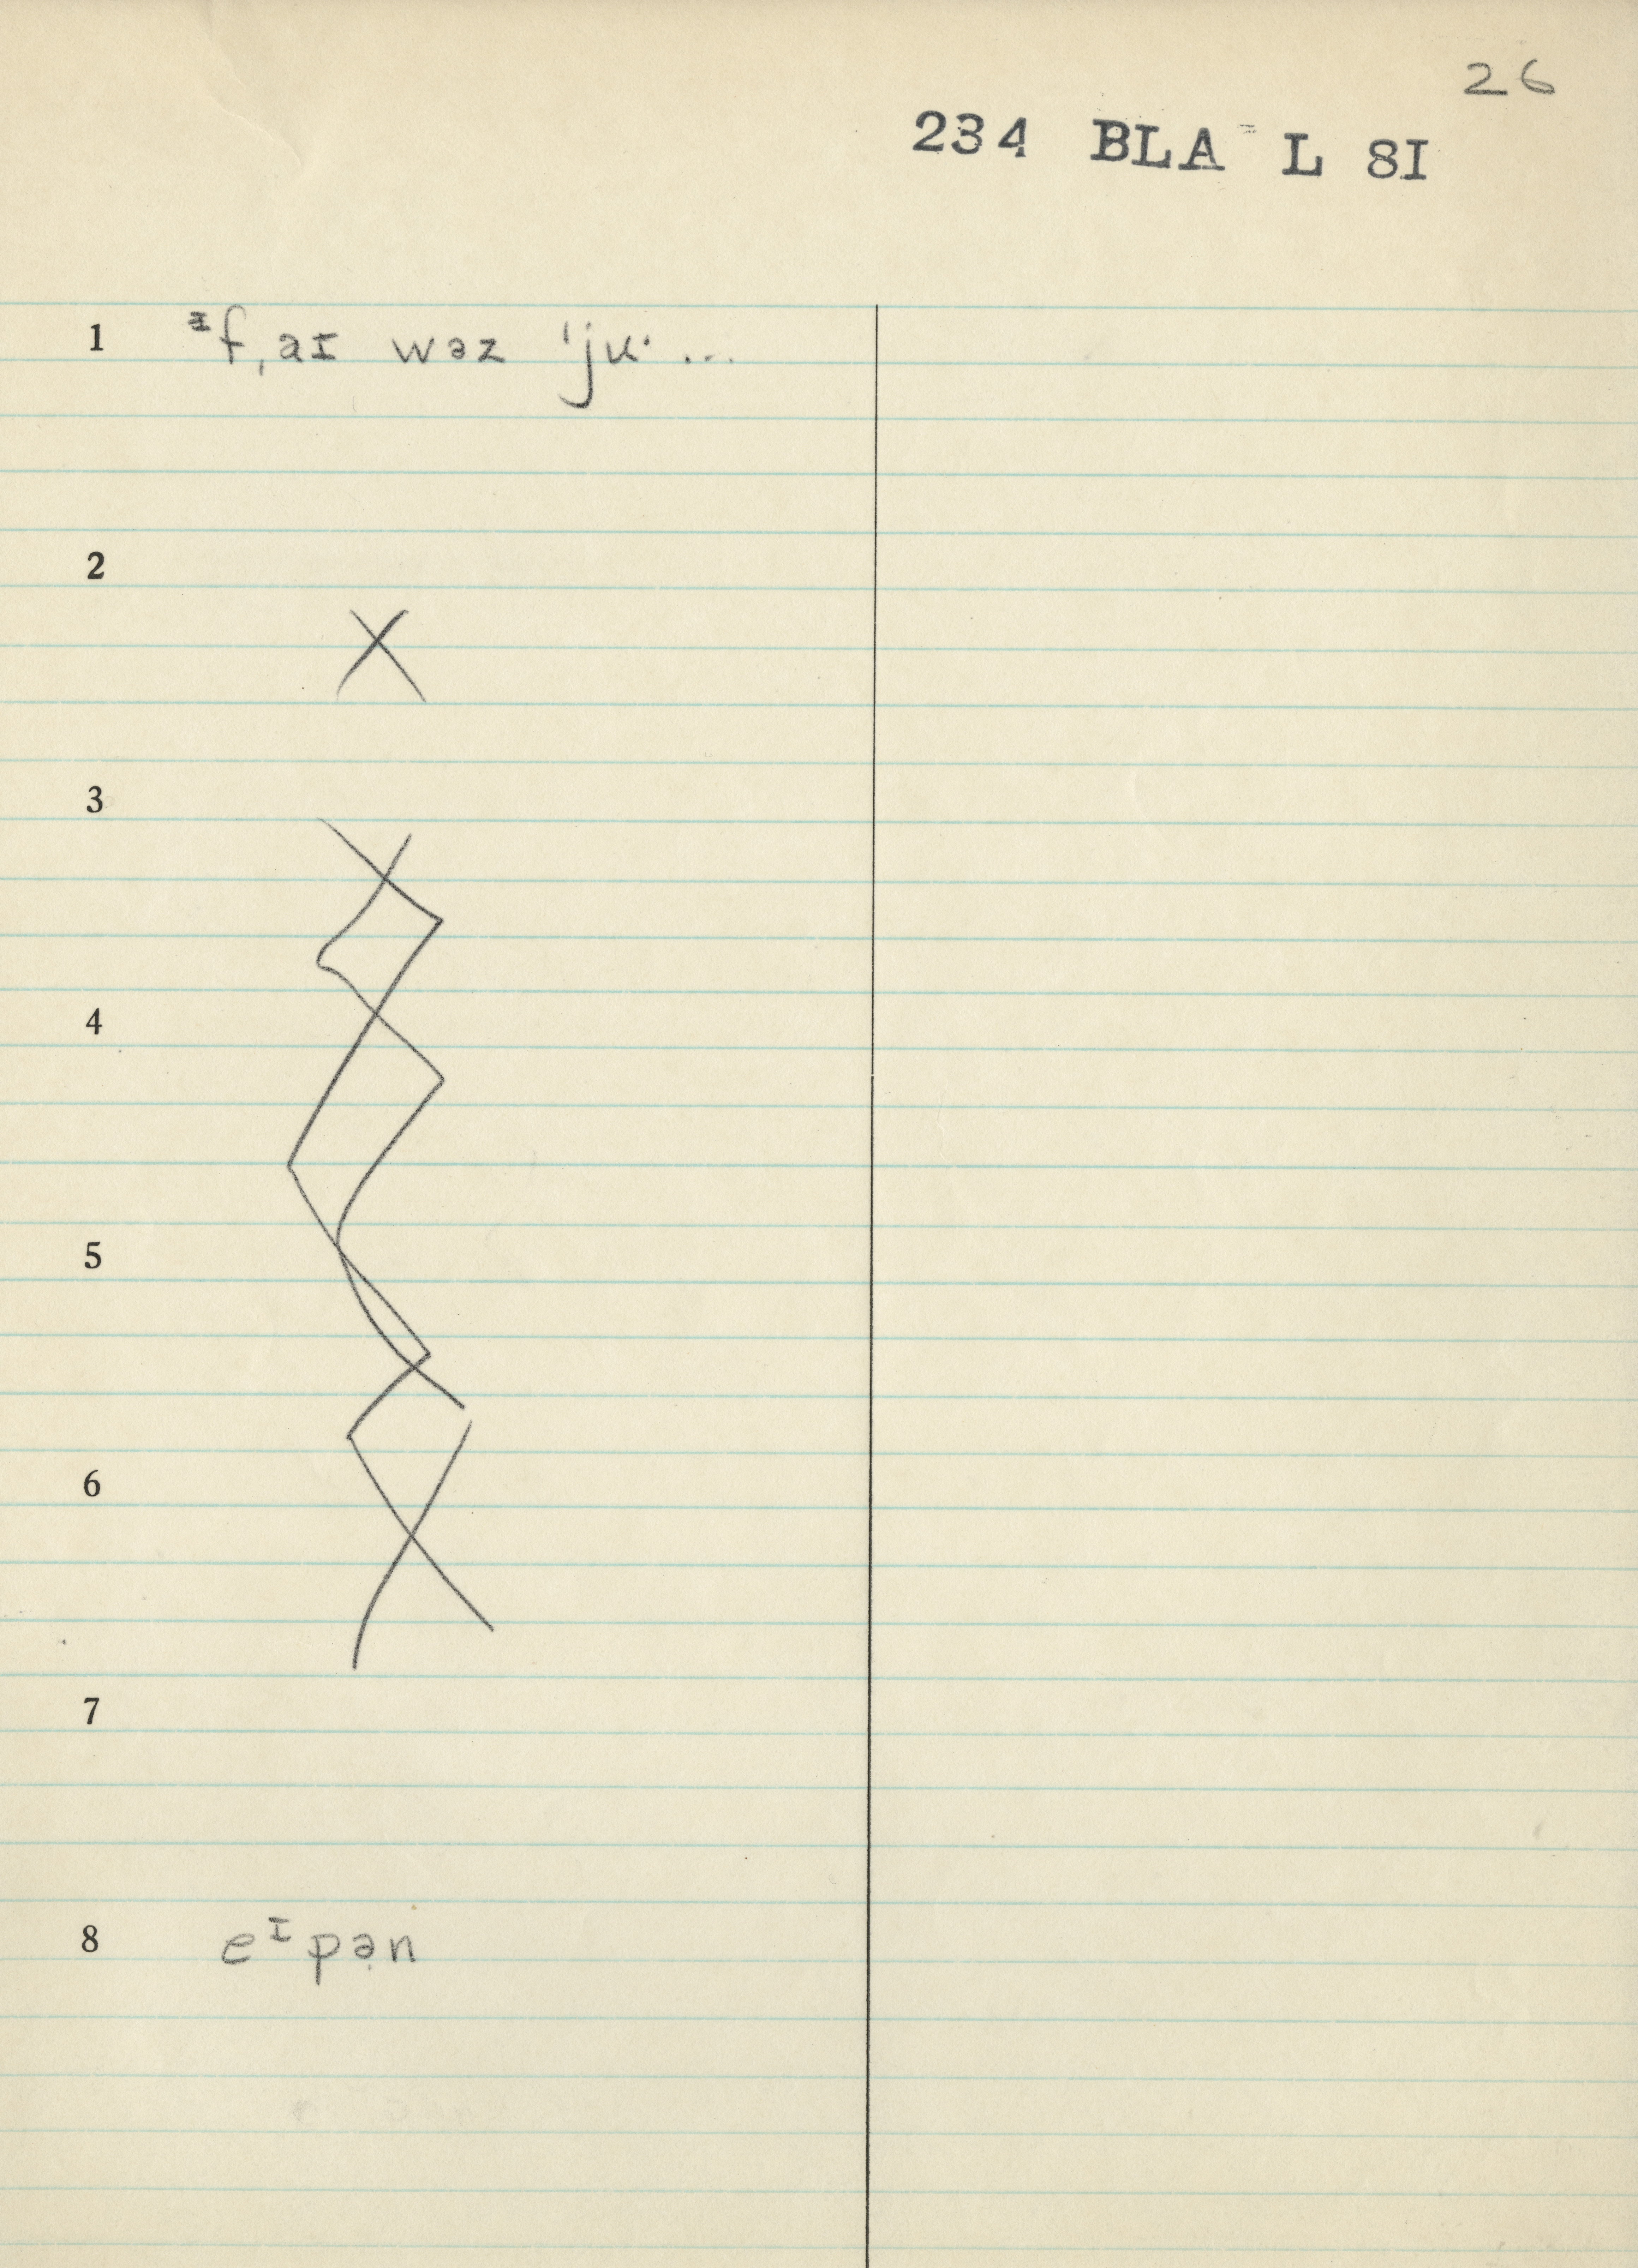 26
234 BLA L 8I
1 ᶦf ˌaɪ wəz ˈju· ...
2
X
3
4
5
6
7
8 eᶦpə̣n